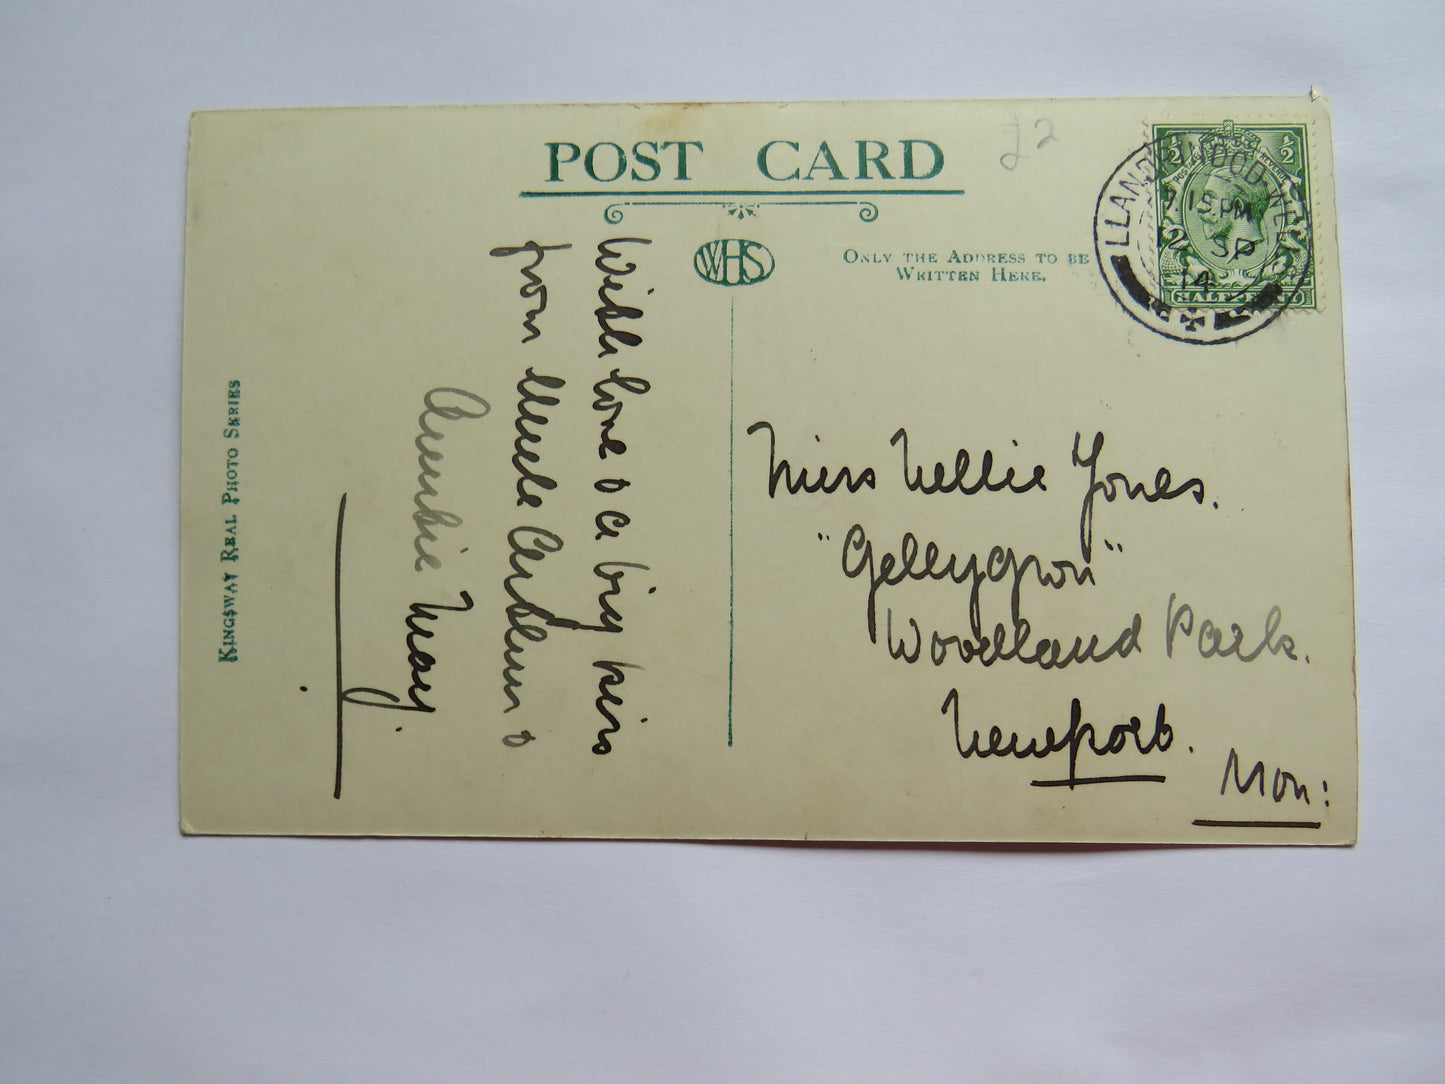 POST CARD
£2
WHS
ONLY THE ADDRESS TO BE
WRITTEN HERE.
LLANDRINDOD WELLS
7.15 PM
SP
14
POSTAGE
1/2 1/2
HALFPENNY
KINGSWAY REAL PHOTO SERIES
With love & a big kiss
from Uncle Arthur &
Auntie May.
Miss Nellie Jones.
"Gellygron"
Woodland Park.
Newport.
Mon: